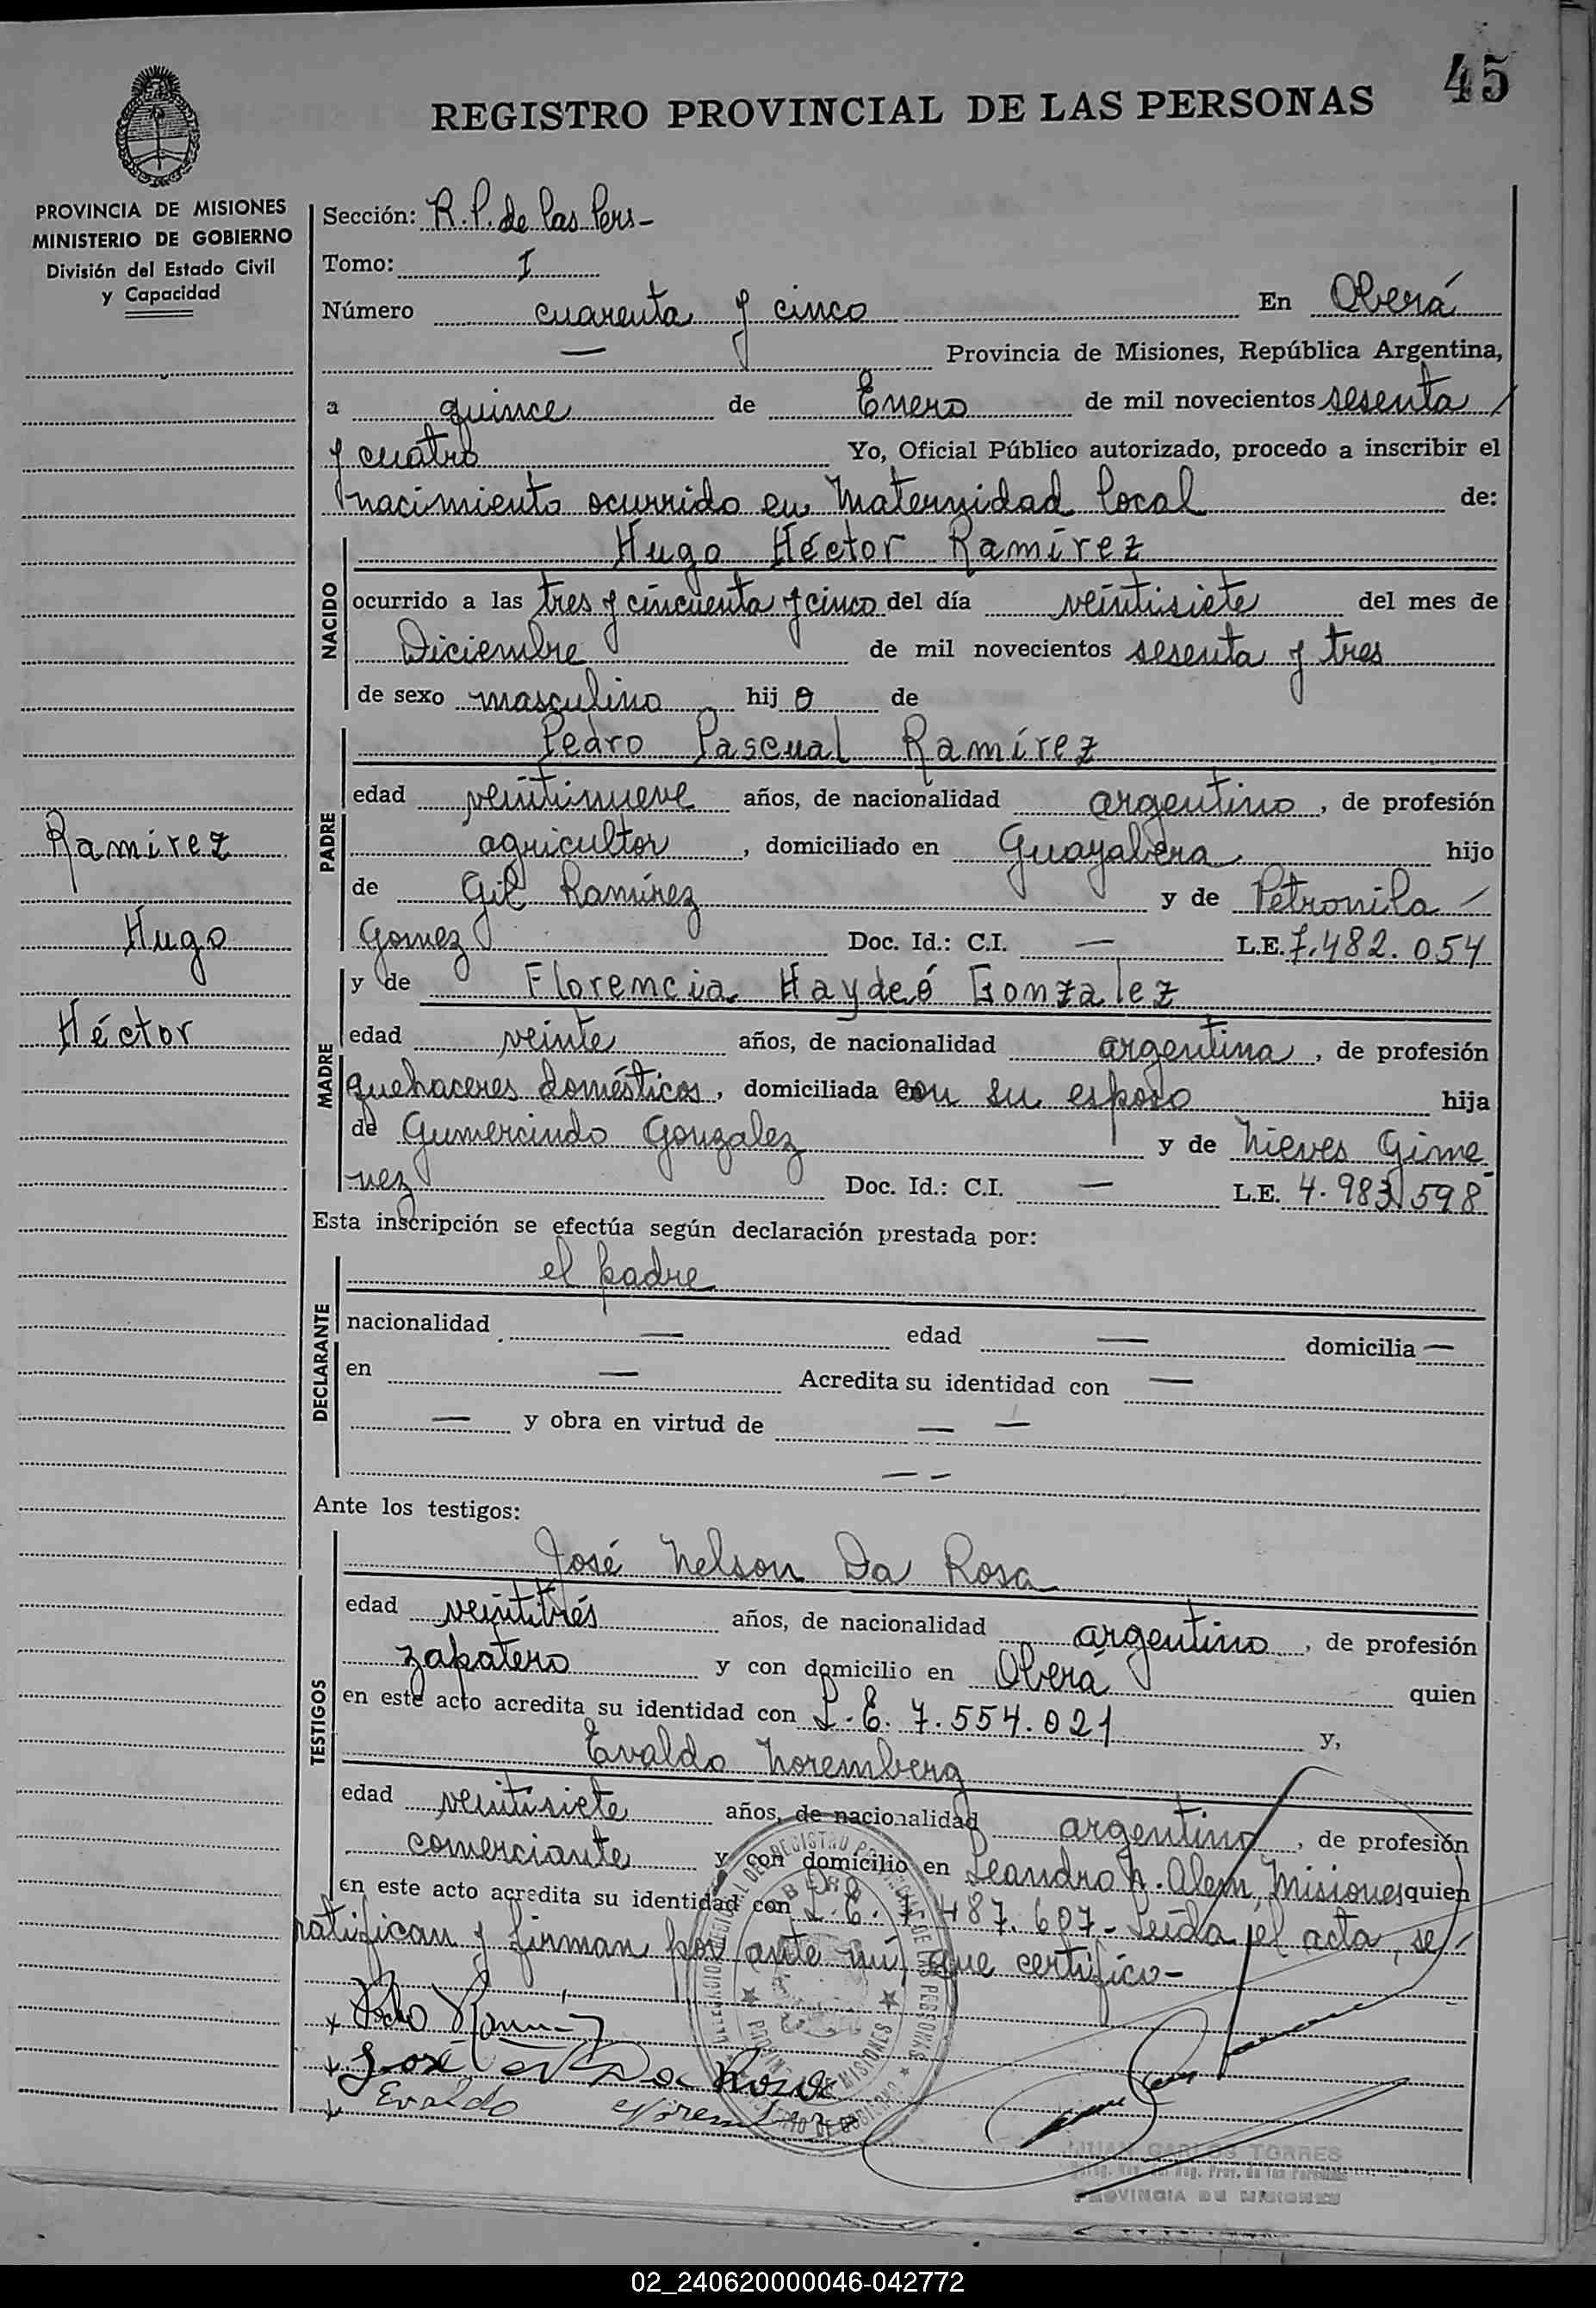 45
REGISTRO PROVINCIAL DE LAS PERSONAS
PROVINCIA DE MISIONES
MINISTERIO DE GOBIERNO
División del Estado Civil
y Capacidad
Sección: R.P. de las Pers-
Tomo: I
Número cuarenta y cinco En Oberá
— Provincia de Misiones, República Argentina,
a quince de Enero de mil novecientos sesenta
y cuatro Yo, Oficial Público autorizado, procedo a inscribir el
nacimiento ocurrido en Maternidad local de:
NACIDO
Hugo Héctor Ramírez
ocurrido a las tres y cincuenta y cinco del día veintisiete del mes de
Diciembre de mil novecientos sesenta y tres
de sexo masculino hij o de
PADRE
Pedro Pascual Ramírez
edad veintinueve años, de nacionalidad argentino, de profesión
agricultor, domiciliado en Guayabera hijo
de Gil Ramírez y de Petronila
Gomez Doc. Id.: C.I. — L.E. 7.482.054
Ramírez
Hugo
Héctor
MADRE
y de Florencia Haydeé Gonzalez
edad veinte años, de nacionalidad argentina, de profesión
quehaceres domésticos, domiciliada con su esposo hija
de Gumercindo Gonzalez y de Nieves Gime-
nez Doc. Id.: C.I. — L.E. 4.983.598
Esta inscripción se efectúa según declaración prestada por:
DECLARANTE
el padre
nacionalidad — edad — domicilia —
en — Acredita su identidad con —
— y obra en virtud de — —
— —
Ante los testigos:
TESTIGOS
José Nelson Da Rosa
edad veintitrés años, de nacionalidad argentino, de profesión
zapatero y con domicilio en Oberá quien
en este acto acredita su identidad con L.E. 7.554.021 y,
Evaldo Noremberg
edad veintisiete años, de nacionalidad argentino, de profesión
comerciante y con domicilio en Leandro N. Alem, Misiones quien
en este acto acredita su identidad con L.E. 7.487.607- Leída el acta, se
ratifican y firman por ante mí, que certifico-
x Pedro Ramírez
x José N Da Rosa
x Evaldo Noremberg
OBERÁ
PROVINCIA DE MISIONES
JUAN CARLOS TORRES
PROVINCIA DE MISIONES
02_240620000046-042772